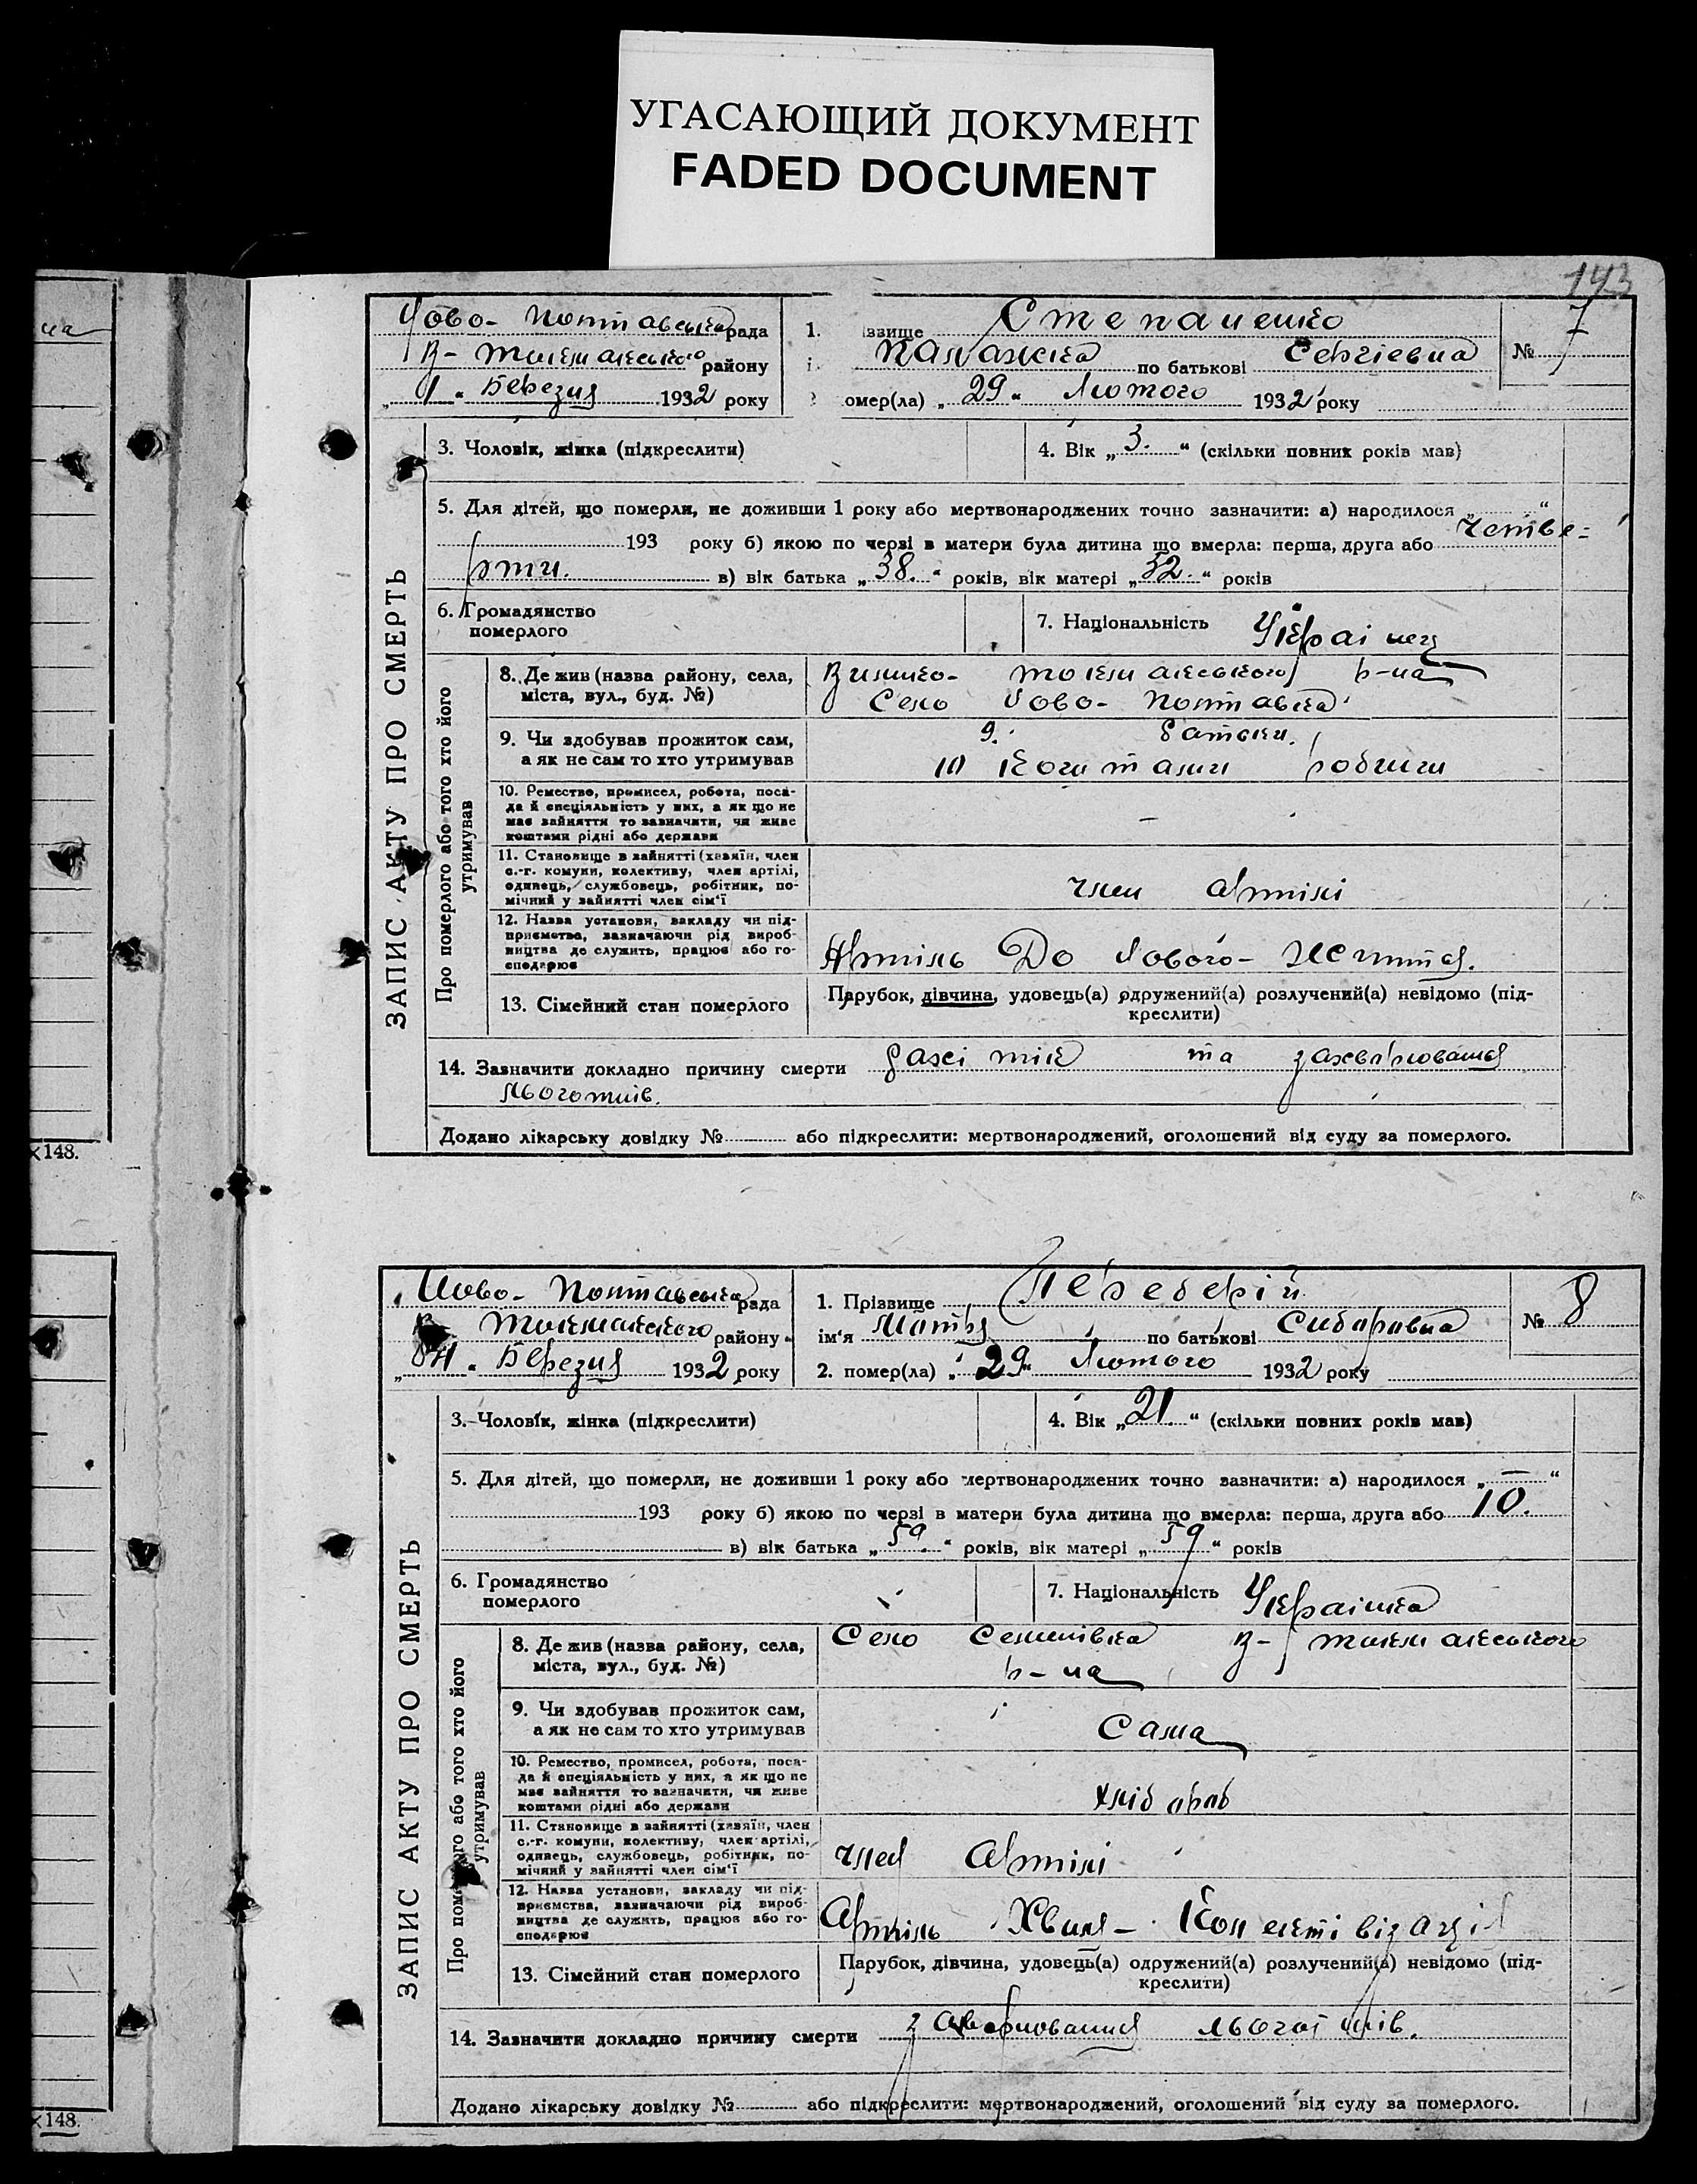 УГАСАЮЩИЙ ДОКУМЕНТ
FADED DOCUMENT
143
Ново- Полтавська рада
В- Токмакського району
„ 1 “ Березня 1932 року
1. ізвище Степаненко
і. Палажка по батькові Сергіевна
омер(ла) „ 29 “ Лютого 1932 року
№ 7
3. Чоловік, жінка (підкреслити)
4. Вік „ 3. “ (скільки повних років мав)
5. Для дітей, що померли, не доживши 1 року або мертвонароджених точно зазначити: а) народилося „ “
193 року б) якою по черзі в матери була дитина що вмерла: перша, друга або четве-
рти. в) вік батька „ 38. “ років, вік матері „ 32. “ років
6. Громадянство
померлого
7. Національність Украінец
ЗАПИС АКТУ ПРО СМЕРТЬ
Про померлого або того хто його
утримував
8. Де жив (назва району, села,
міста, вул., буд. №)
Токмакського р-на
Село Ново- Полтавка
9. Чи здобував прожиток сам,
а як не сам то хто утримував
9. батьки.
10
10. Ремество, промисел, робота, поса-
да й спеціяльність у них, а як що не
має зайняття то зазначити, чи живе
коштами рідні або держави
-
11. Становище в зайнятті (хазяїн, член
с.-г. комуни, колективу, член артілі,
одинець, службовець, робітник, по-
мічний у зайнятті член сім'ї
член артілі
12. Назва установи, закладу чи під-
приємства, зазначаючи рід вироб-
ництва де служить, працює або го-
сподарює
Артіль До Нового- Життя.
13. Сімейний стан померлого
Парубок, дівчина, удовець(а) одружений(а) розлучений(а) невідомо (під-
креслити)
14. Зазначити докладно причину смерти та захварювання
льоготнів.
Додано лікарську довідку № або підкреслити: мертвонароджений, оголошений від суду за померлого.
×148.
Ново- Полтавська рада
В- Токмакского району
„ “ Березня 1932 року
1. Прізвище Переберій
ім'я Мотря по батькові Сидоравна
2. помер(ла) „ 29 “ Лютого 1932 року
№ 8
3. Чоловік, жінка (підкреслити)
4. Вік „ 21. “ (скільки повних років мав)
5. Для дітей, що померли, не доживши 1 року або мертвонароджених точно зазначити: а) народилося „ — “
193 року б) якою по черзі в матери була дитина що вмерла: перша, друга або 10.
в) вік батька „ 59. “ років, вік матері „ 59 “ років
6. Громадянство
померлого
7. Національність Украінка
ЗАПИС АКТУ ПРО СМЕРТЬ
Про померлого або того хто його
утримував
8. Де жив (назва району, села,
міста, вул., буд. №)
Село Семенівка В- Токмакського
р-на
9. Чи здобував прожиток сам,
а як не сам то хто утримував
Сама
10. Ремество, промисел, робота, поса-
да й спеціяльність у них, а як що не
має зайняття то зазначити, чи живе
коштами рідні або держави
хлібороб
11. Становище в зайнятті (хазяїн, член
с.-г. комуни, колективу, член артілі,
одинець, службовець, робітник, по-
мічний у зайнятті член сім'ї
член Артілі
12. Назва установи, закладу чи під-
приємства, зазначаючи рід вироб-
ництва де служить, працює або го-
сподарює
Артіль Хвиля- Колектівізаціі
13. Сімейний стан померлого
Парубок, дівчина, удовець(а) одружений(а) розлучений(а) невідомо (під-
креслити)
14. Зазначити докладно причину смерти захварювання
Додано лікарську довідку № або підкреслити: мертвонароджений, оголошений від суду за померлого.
×148.